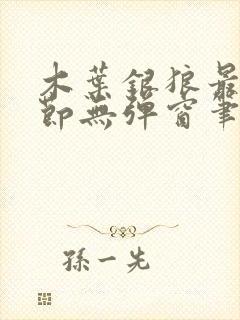 木葉銀狼最
節無彈窗筆
孫一先